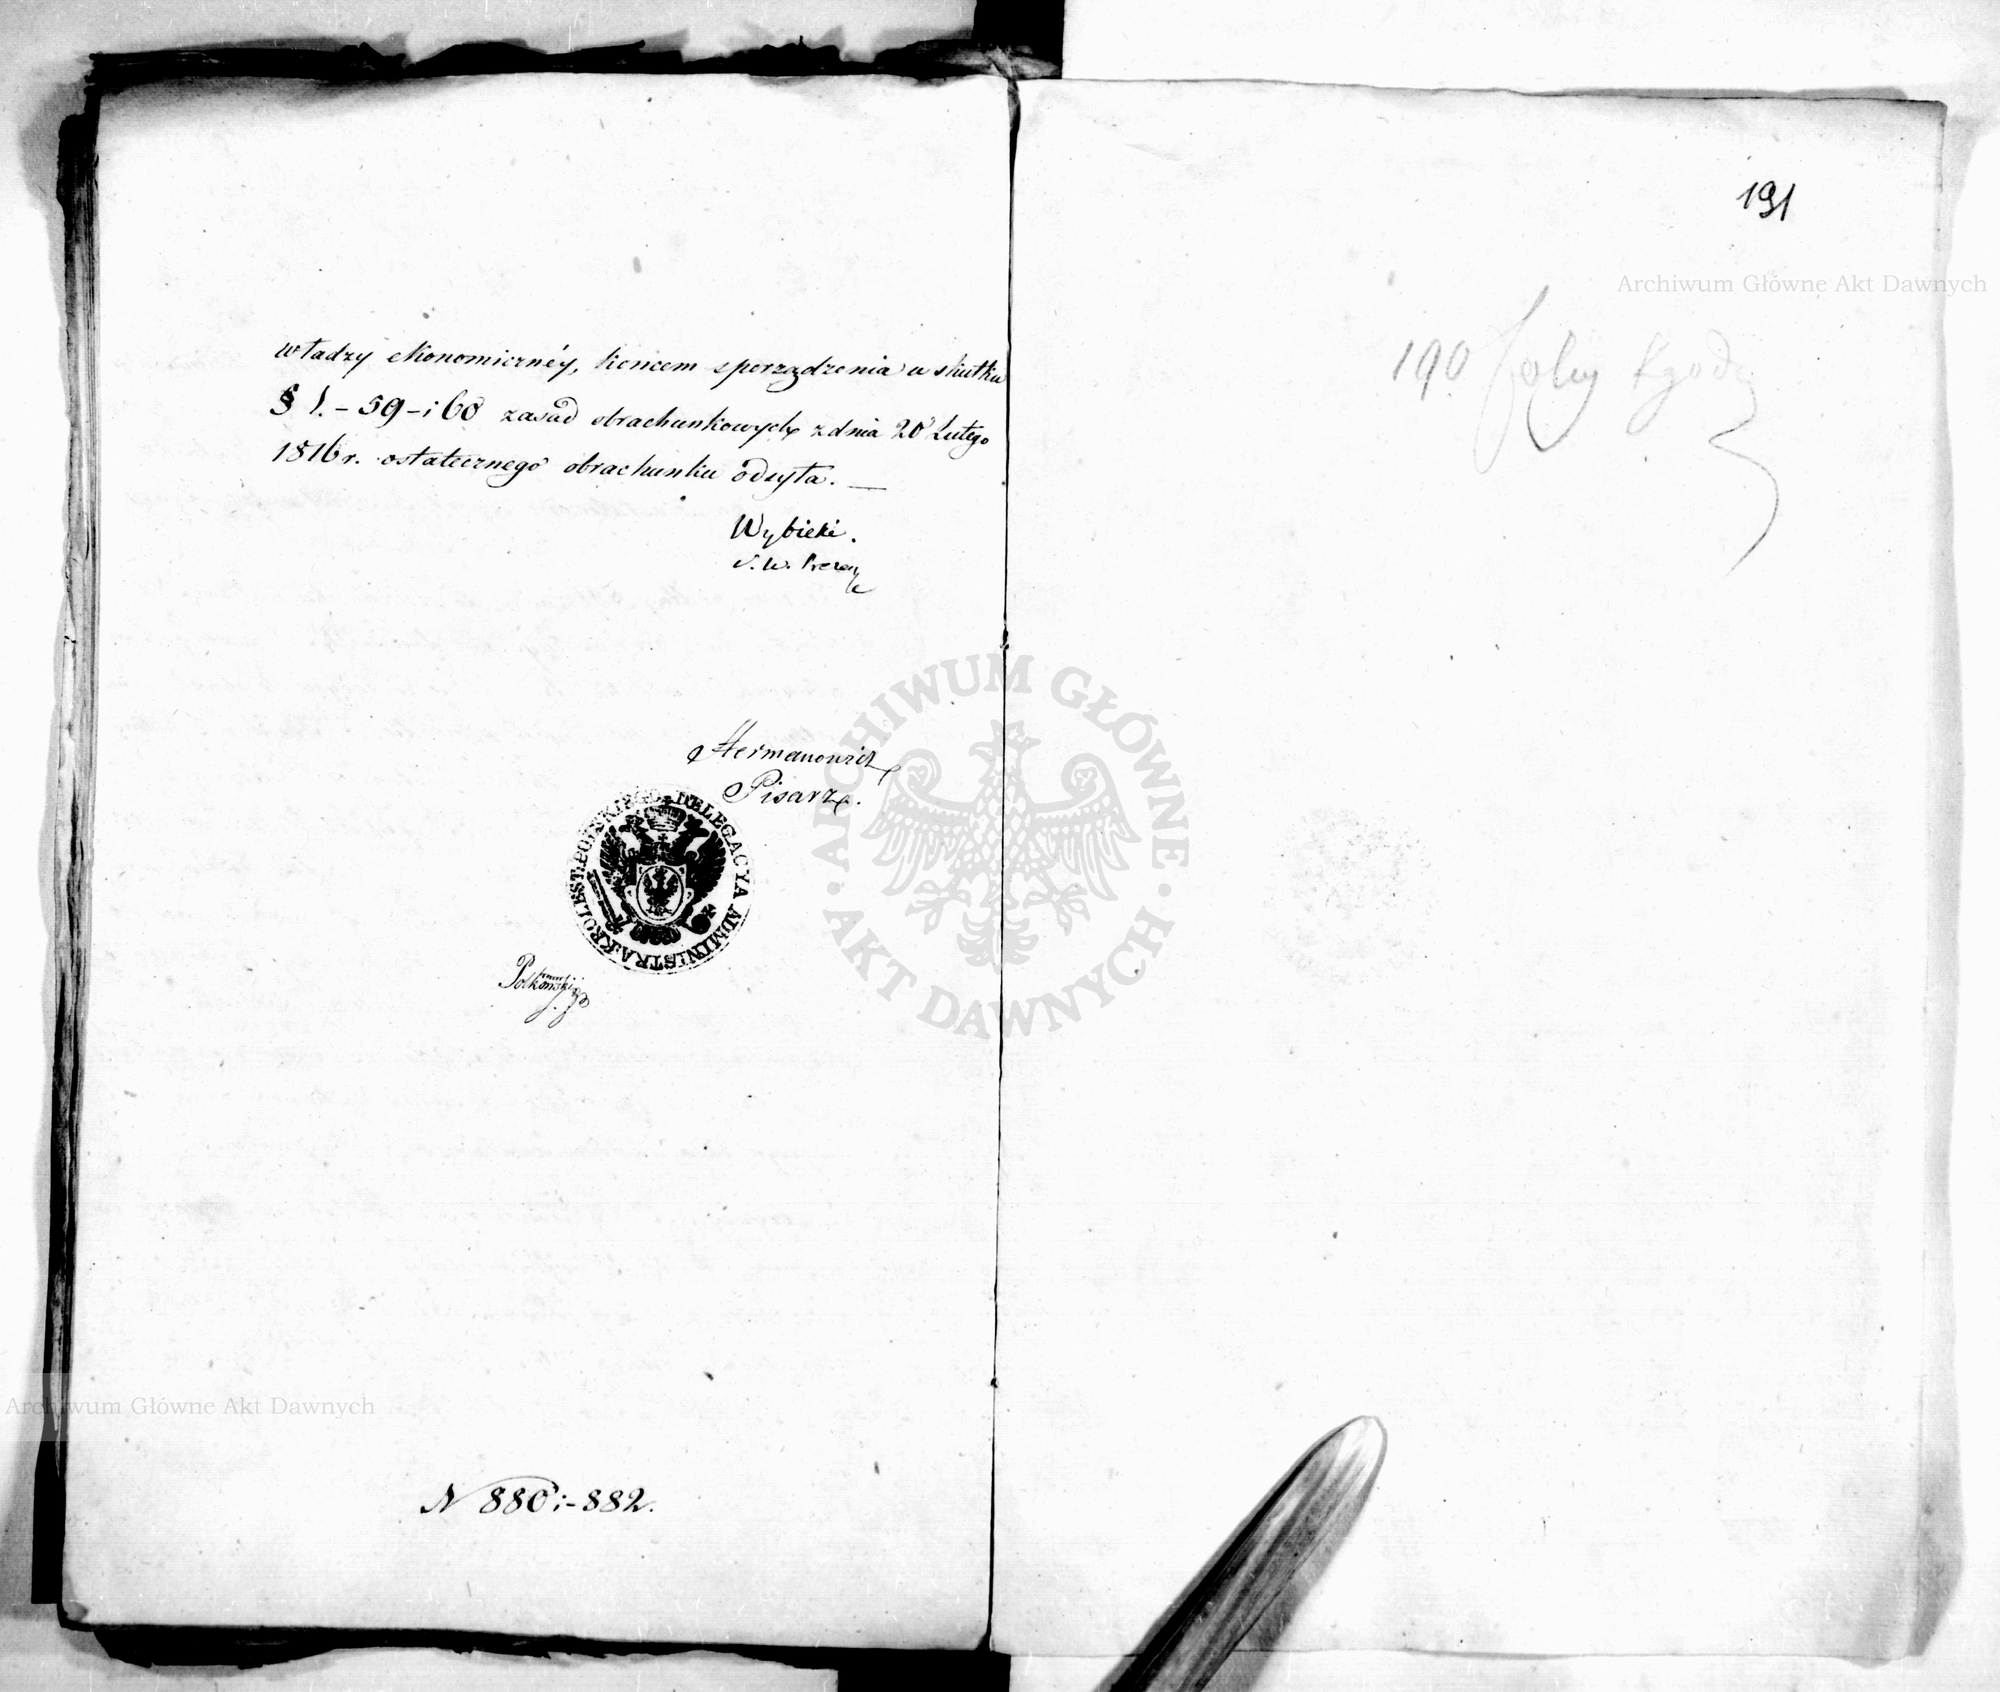 władzy ekonomicznéy, końcem sporządzenia w skutku
§ 1. - 59 - i 60 zasad obrachunkowych z dnia 20 Lutego
1816 r. ostatecznego obrachunku odsyła. —
Wybicki.
S. W. Prezes
Hermanowicz
Pisarz.
KROLEST: POLSKIEGO DELEGACYA ADMINISTRA:
Polkowski
N 880 i - 882.
191
Archiwum Główne Akt Dawnych
190
ARCHIWUM GŁÓWNE · AKT DAWNYCH ·
Archiwum Główne Akt Dawnych